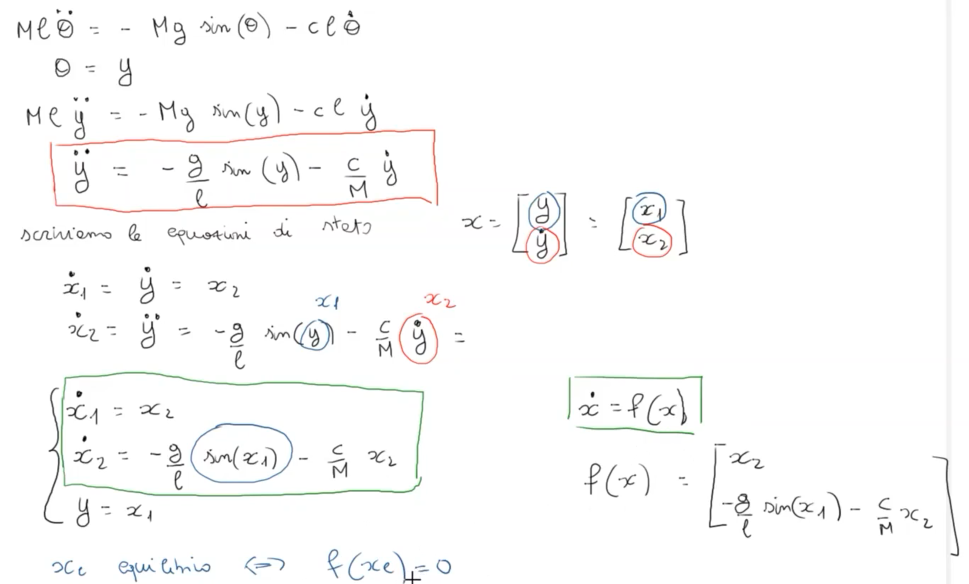 Mℓθ̈ = - Mg sin(θ) - cℓθ̇
θ = y
Mℓÿ = - Mg sin(y) - cℓẏ
ÿ = - g/ℓ sin(y) - c/M ẏ
scriviamo le equazioni di stato
x = [y ẏ] = [x₁ x₂]
ẋ₁ = ẏ = x₂
x₁ x₂
ẋ₂ = ÿ = -g/ℓ sin(y) - c/M ẏ =
ẋ₁ = x₂
ẋ₂ = -g/ℓ sin(x₁) - c/M x₂
y = x₁
ẋ = f(x)
f(x) = [x₂ -g/ℓ sin(x₁) - c/M x₂]
xₑ equilibrio ⇔ f(xₑ) = 0